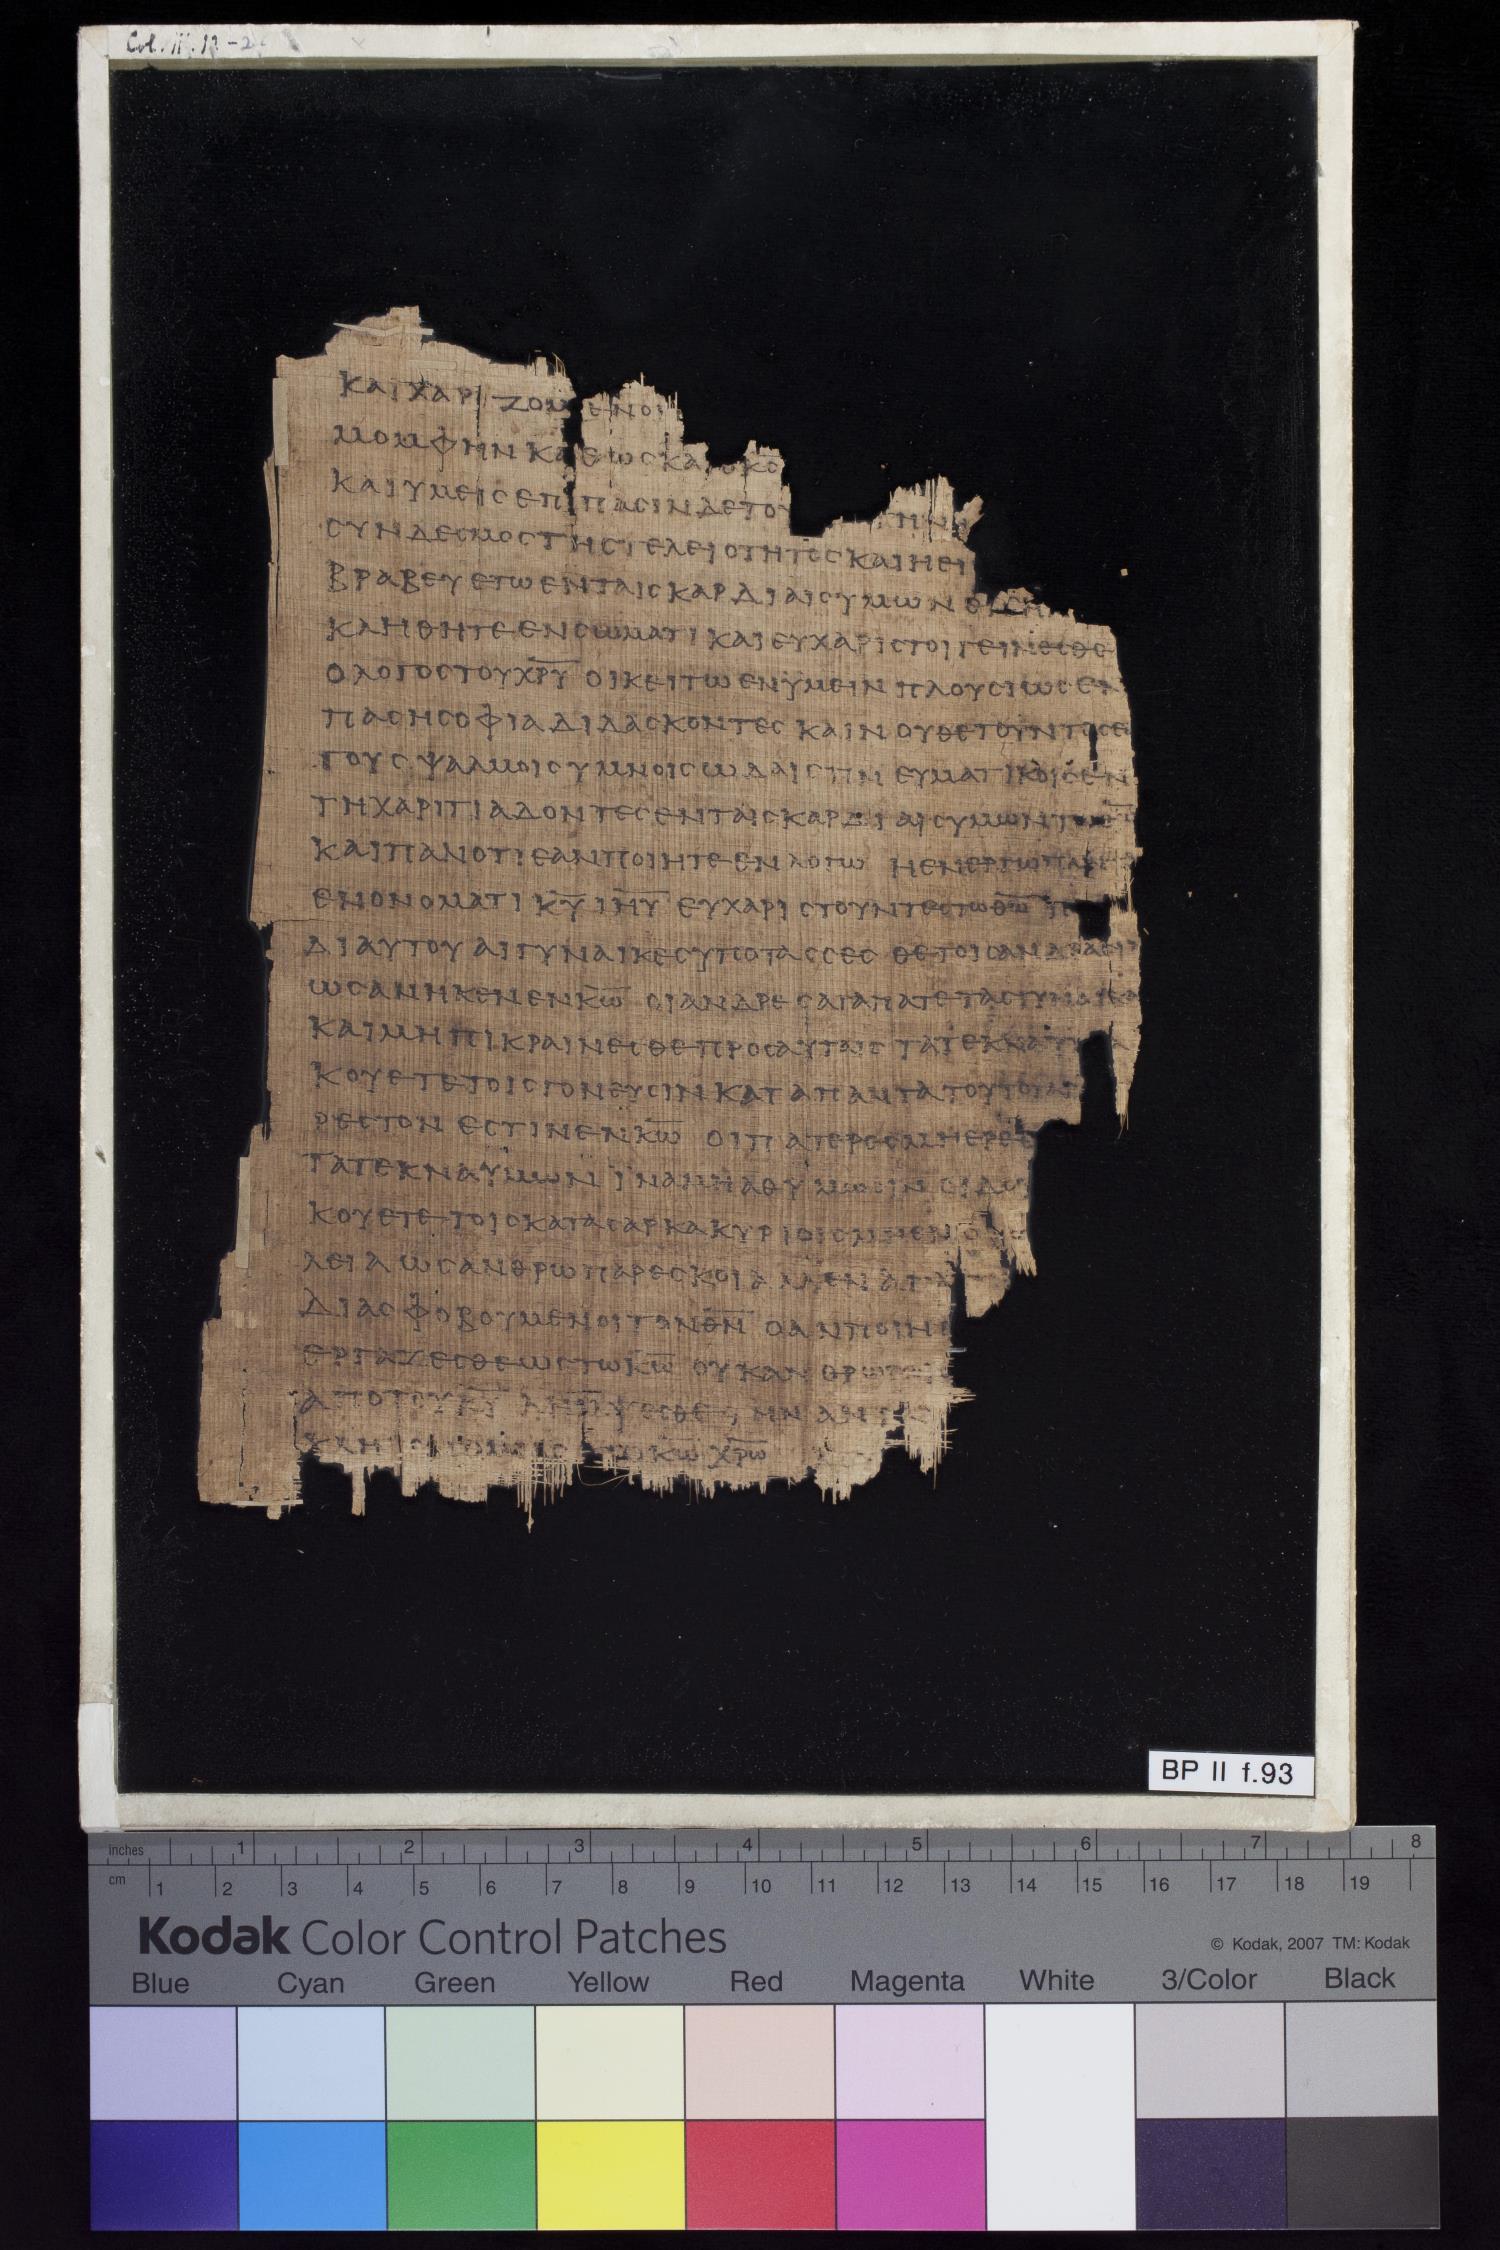 Col. III. 13 - 2
ΚΑΙ ΧΑΡΙΖΟΜΕΝΟΙ
ΜΟΜΦΗΝ ΚΑΘΩΣ ΚΑΙ Ο Κ̅Ο̅
ΚΑΙ ΥΜΕΙΣ ΕΠΙ ΠΑΣΙΝ ΔΕ ΤΟΥ
ΣΥΝΔΕΣΜΟΣ ΤΗΣ ΤΕΛΕΙΟΤΗΤΟΣ ΚΑΙ Η ΕΙ
ΒΡΑΒΕΥΕΤΩ ΕΝ ΤΑΙΣ ΚΑΡΔΙΑΙΣ ΥΜΩΝ
ΚΛΗΘΗΤΕ ΕΝ ΣΩΜΑΤΙ ΚΑΙ ΕΥΧΑΡΙΣΤΟΙ ΓΕΙΝΕΣΘΕ
Ο ΛΟΓΟΣ ΤΟΥ Χ̅Ρ̅Υ̅ ΟΙΚΕΙΤΩ ΕΝ ΫΜΕΙΝ ΠΛΟΥΣΙΩΣ ΕΝ
ΠΑΣΗ ΣΟΦΙΑ ΔΙΔΑΣΚΟΝΤΕΣ ΚΑΙ ΝΟΥΘΕΤΟΥΝΤΕΣ Ε
ΤΟΥΣ ΨΑΛΜΟΙΣ ΥΜΝΟΙΣ ΩΔΑΙΣ ΠΝΕΥΜΑΤΙΚΟΙΣ ΕΝ
ΤΗ ΧΑΡΙΤΙ ΑΔΟΝΤΕΣ ΕΝ ΤΑΙΣ ΚΑΡΔΙΑΙΣ ΥΜΩΝ ΤΩ
ΚΑΙ ΠΑΝ ΟΤΙ ΕΑΝ ΠΟΙΗΤΕ ΕΝ ΛΟΓΩ Η ΕΝ ΕΡΓΩ
ΕΝ ΟΝΟΜΑΤΙ Κ̅Υ̅ Ι̅Η̅Υ̅ ΕΥΧΑΡΙΣΤΟΥΝΤΕΣ ΤΩ Θ̅Ω̅
ΔΙ ΑΥΤΟΥ ΑΙ ΓΥΝΑΙΚΕΣ ΥΠΟΤΑΣΣΕΣΘΕ ΤΟΙΣ ΑΝΔΡΑΣΙΝ
ΩΣ ΑΝΗΚΕΝ ΕΝ Κ̅Ω̅ ΟΙ ΑΝΔΡΕΣ ΑΓΑΠΑΤΕ ΤΑΣ ΓΥΝΑΙΚΑ
ΚΑΙ ΜΗ ΠΙΚΡΑΙΝΕΣΘΕ ΠΡΟΣ ΑΥΤΑΣ ΤΑ ΤΕΚΝΑ
ΚΟΥΕΤΕ ΤΟΙΣ ΓΟΝΕΥΣΙΝ ΚΑΤΑ ΠΑΝΤΑ ΤΟΥΤΟ
ΡΕΣΤΟΝ ΕΣΤΙΝ ΕΝ Κ̅Ω̅ ΟΙ ΠΑΤΕΡΕΣ ΜΗ ΕΡΕ
ΤΑ ΤΕΚΝΑ ΫΜΩΝ ΪΝΑ ΜΗ ΑΘΥΜΩΣΙΝ ΟΙ ΔΟΥ
ΚΟΥΕΤΕ ΤΟΙΣ ΚΑΤΑ ΣΑΡΚΑ ΚΥΡΙΟΙΣ ΜΗ ΕΝ Ο
ΛΕΙΑ ΩΣ ΑΝΘΡΩΠΑΡΕΣΚΟΙ ΑΛΛ ΕΝ Α
ΔΙΑΣ ΦΟΒΟΥΜΕΝΟΙ ΤΟΝ Θ̅Ν̅ Ο ΑΝ ΠΟΙΗ
ΕΡΓΑΖΕΣΘΕ ΩΣ ΤΩ Κ̅Ω̅ ΟΥΚ ΑΝΘΡΩΠΟΙ
ΑΠΟ ΤΟΥ Κ̅Υ̅
Κ̅Ω̅ Χ̅Ρ̅Ω̅
BP II f.93
inches 1 2 3 4 5 6 7 8
cm 1 2 3 4 5 6 7 8 9 10 11 12 13 14 15 16 17 18 19
Kodak Color Control Patches
© Kodak, 2007 TM: Kodak
Blue Cyan Green Yellow Red Magenta White 3/Color Black